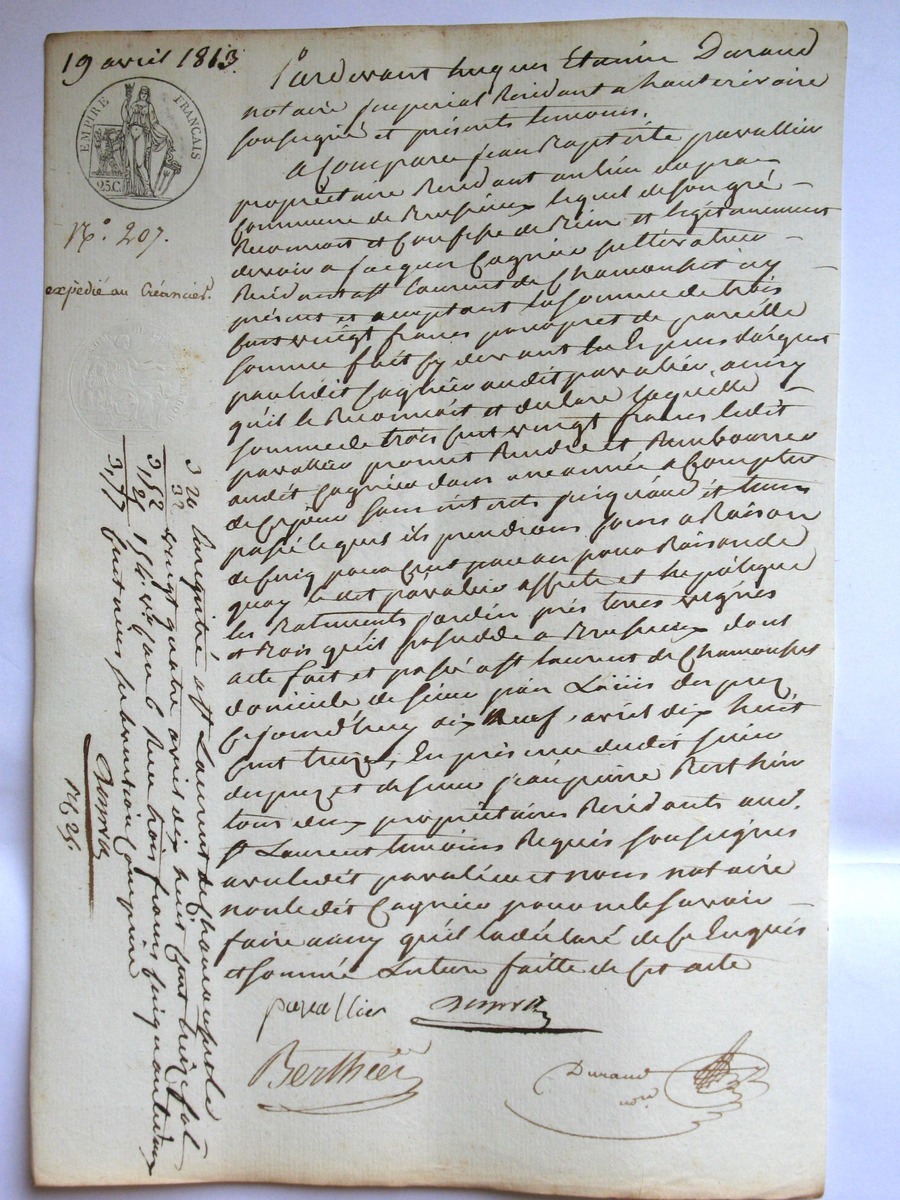 19 avril 1813
EMPIRE FRANÇAIS
25 C.
N.° 207.
expédié au Créancier.
Pardevant hugues Etienne Durand
notaire Imperial Residant a hauterivoire
soussigné et présents temoins.
a Comparu jean Baptiste pavallier
propriétaire Residant au lieu du pra
Commune de Brussieux lequel de son gré
Reconnoit et Confesse de Bien et legitimement
devoir a jacques Cagnier
Residant a st laurent de Chamousset icy
présent et acceptant la somme de trois
cent vingt francs pour pret de pareille
somme fait cy devant En Espèces
par ledit Cagnier audit pavallier, ainsy
qu'il le Reconnoit et declare laquelle
somme de trois cent vingt francs ledit
pavallier promet Rendre et Rembourser
audit Cagnier dans une année a Compter
de Ce jour sans interets jusqu'au dit tems
passé lequel ils prendront Cours a Raison
de cinq pour Cent par an pour Raison de
quoy ledit pavallier affecte et hypotèque
les Batiments jardin prés terres vignes
et Bois qu'il possedde a Brussieux dont
acte fait et passé a st laurent de Chamousset
domicile de sieur Louis dupuz
Cejourd'huy dix Neuf avril dix huit
Cent treize, En présence dudit sieur
dupuz et de sieur jean pierre Berthier
tous deux propriétaires Residants aud.
st Laurent temoins Requis soussignés
avec ledit pavallier et nous notaire
non ledit Cagnier pour ne le savoir
faire ainsy qu'il l'a déclaré de Ce Enquis
et sommé Lecture faitte de Cet acte
pavallier
Berthier
Durand
nore
3 20
32
3,52
3,25
3,77
Enregistré a st Laurent de chamousset le
vingt quatre avril dix huit Cent treize fol
154 vo Case 6 Reçu trois francs cinquante deux
Centimes subvention Comprise